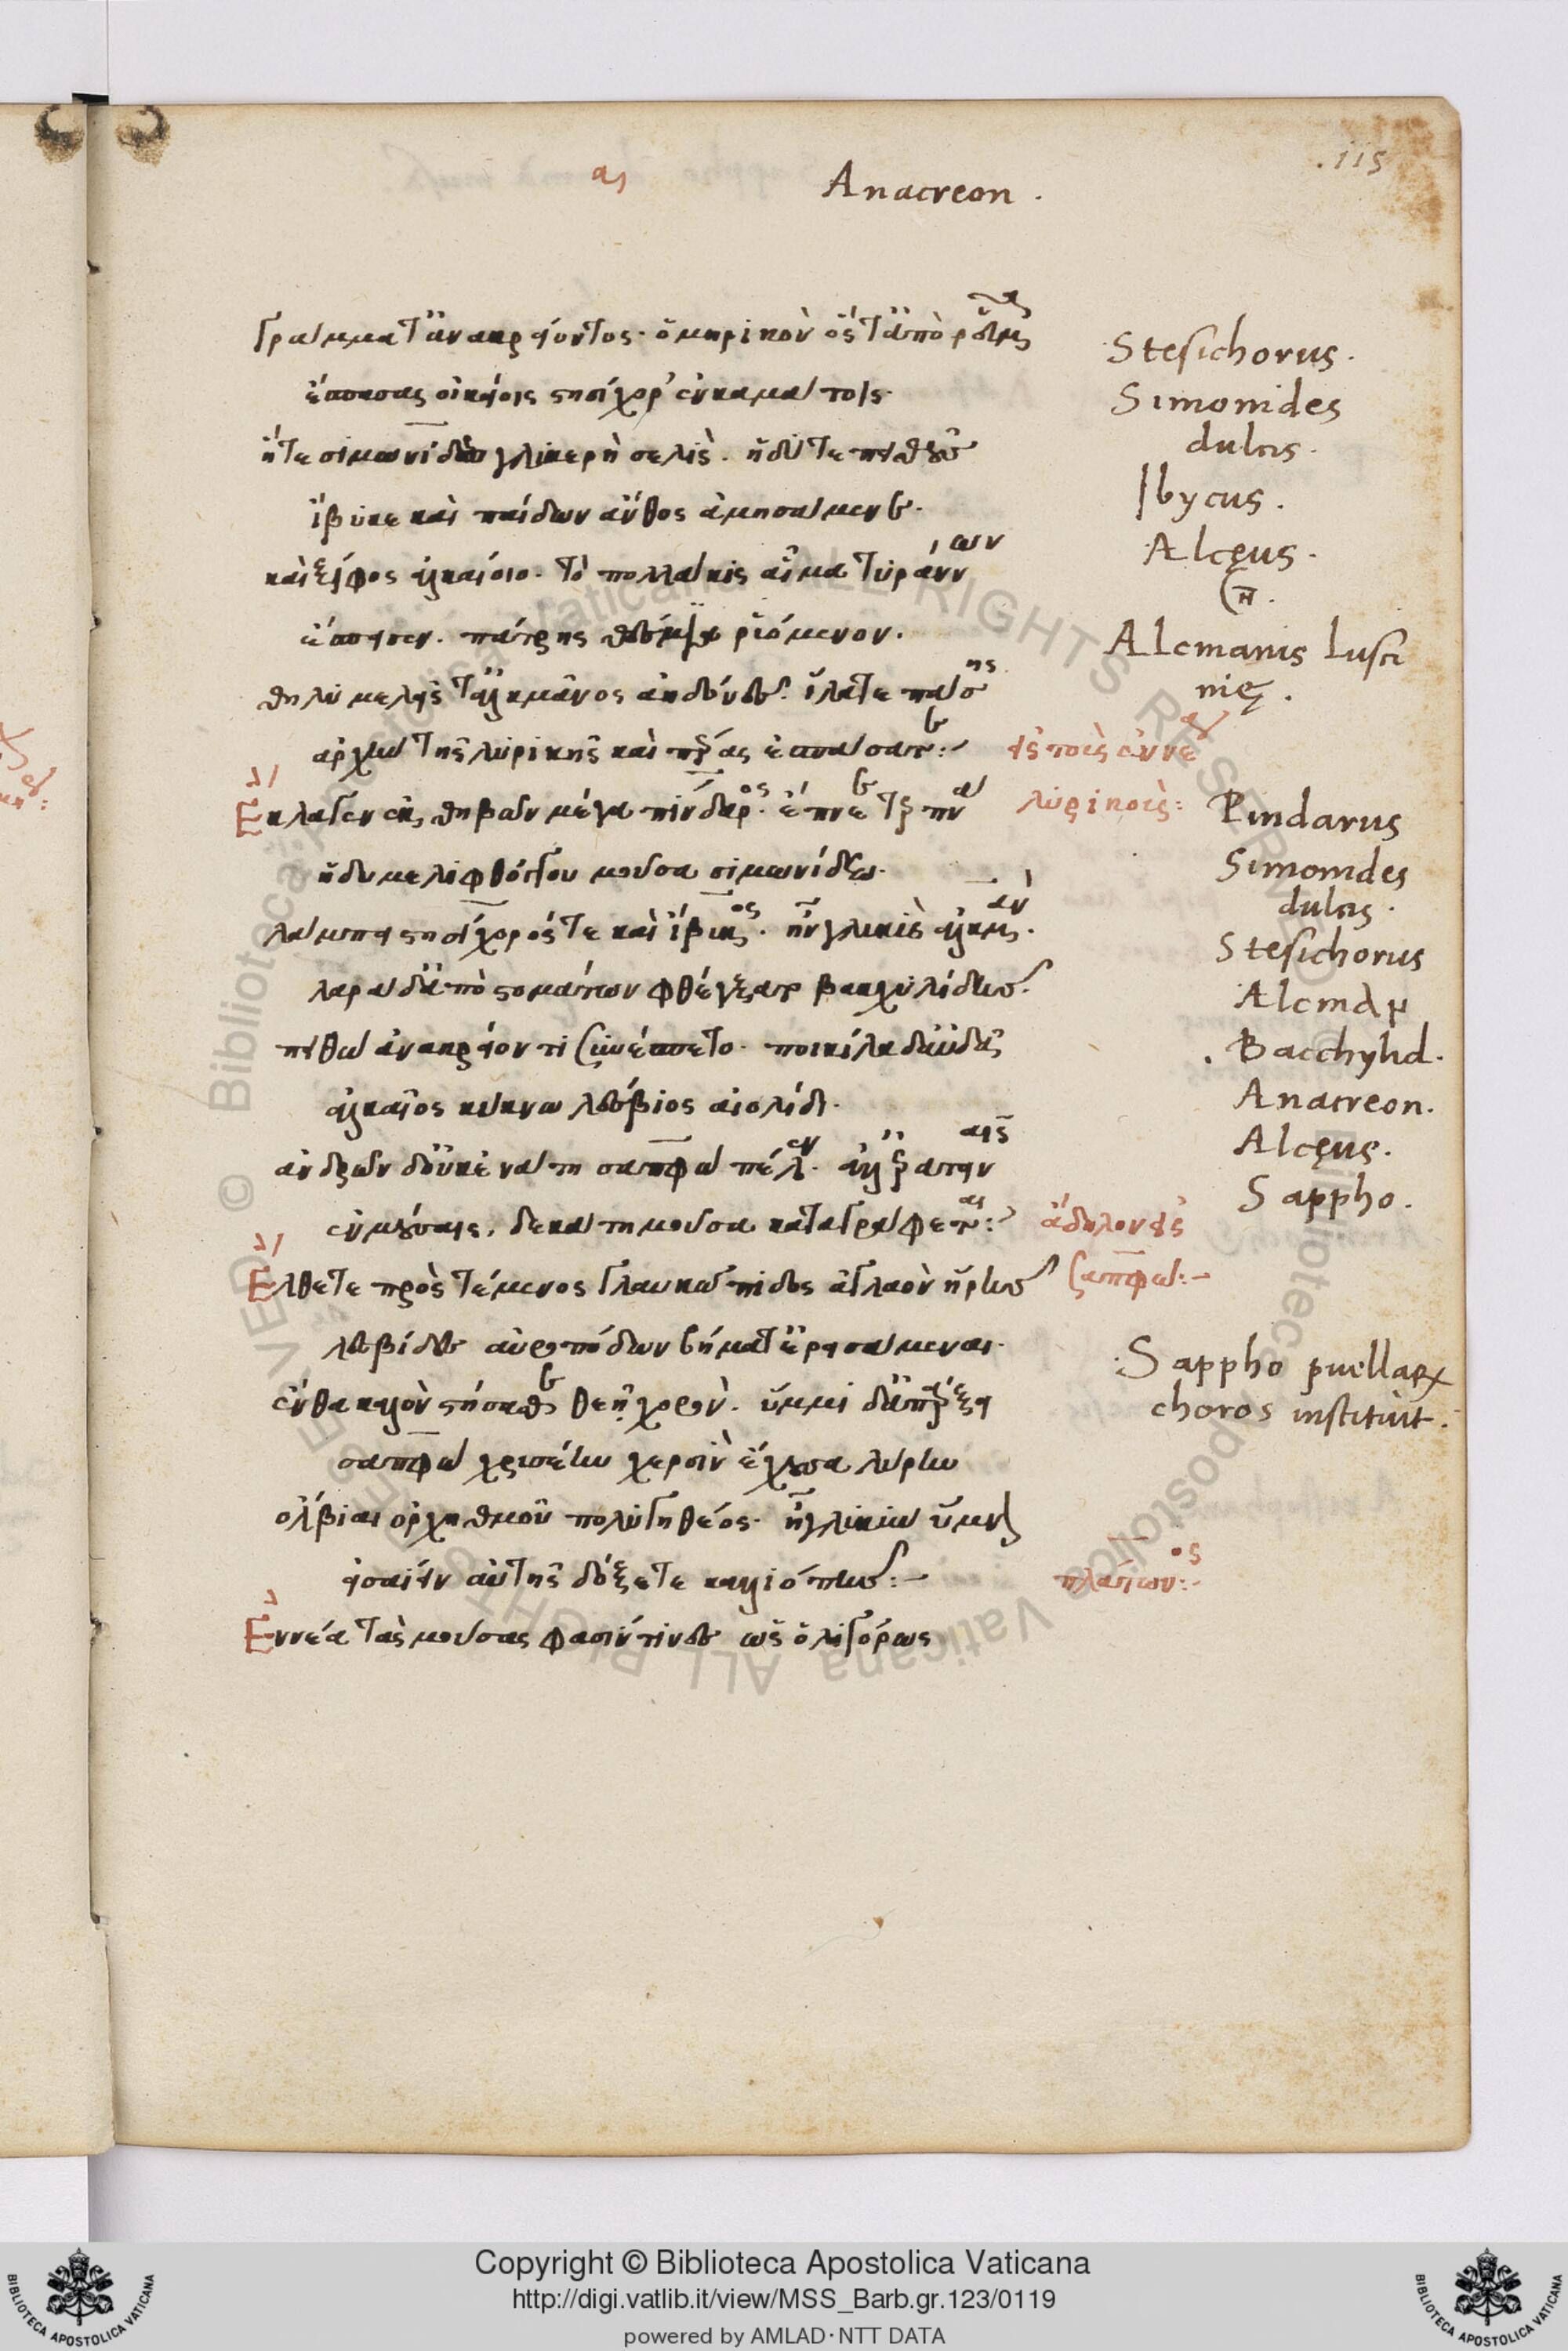 .115
Anacreon .
γράμματ' ἀνακρείοντος· ὁμηρικὸν ὅς τ' ἀπὸ ῥεῦμα
ἔσπασας οἰκείοις στησίχορ' ἐν καμάτοις·
ἥτε σιμωνίδεω γλυκερὴ σελὶς. ἡδύ τε πειθοῦς
ἴβυκε καὶ παίδων ἄνθος ἀμησάμενε·
καὶ ξίφος ἀλκαίοιο· τὸ πολλάκις αἷμα τυράννων
ἔσπεισεν. πάτρης θέσμια ῥυόμενον.
θηλυμελεῖς τ' ἀλκμᾶνος ἀηδόνες· ἵλατε πάσης
ἀρχὴν τῆς λυρικῆς καὶ πέρας ἐσπάσατε:
Ἔκλαγεν ἐκ θηβῶν μέγα πίνδαρος· ἔπνεε τερπνὰ
ἡδυμελιφθόγγου μοῦσα σιμωνίδεω·
λάμπει στησίχορός τε καὶ ἴβυκος· ἦν γλυκὺς ἀλκμάν·
λαρὰ δ' ἀπὸ στομάτων φθέγξατο βακχυλίδης·
πειθὼ ἀνακρείοντι συνέσπετο· ποικίλα δ' αὐδᾶ
ἀλκαῖος κύκνω λέσβιος αἰολίδι·
ἀνδρῶν δ' οὐκ ἐνάτη σαπφὼ πέλεν· ἀλλ' ἐρατειναῖς
ἐν μούσαις, δεκάτη μοῦσα καταγράφεται:
Ἔλθετε πρὸς τέμενος γλαυκώπιδος ἀγλαὸν ἥρης
λεσβίδες ἁβρὰ ποδῶν βήματ' ἐρεισάμεναι·
ἔνθα καλὸν στήσασθε θεῇ χορὸν. ὔμμι δ' ἀπάρξει
σαπφὼ χρυσέην χερσὶν ἔχουσα λύρην
ὄλβιαι ὀρχηθμοῦ πολυγηθέος· ἦ γλυκὺν ὕμνον
εἰσαΐειν αὐτῆς δόξετε καλλιόπης:
Ἐννέα τὰς μούσας φασίν τινες ὡς ὀλιγώρως
εἰς τοὺς ἐννέα
λυρικούς:
ἄδηλον εἰς
σαπφώ:
πλάτωνος:
Stesichorus.
Simonides
dulcis.
Ibycus.
Alcęus.
Alcmanis lusci
nię.
Pindarus
Simonides
dulcis.
Stesichorus
Alcmάν
. Bacchylid.
Anacreon.
Alcęus.
Sappho.
Sappho puellaꝝ
choros instituit.
© Biblioteca Apostolica Vaticana ALL RIGHTS RESERVED
Copyright © Biblioteca Apostolica Vaticana
http://digi.vatlib.it/view/MSS_Barb.gr.123/0119
powered by AMLAD·NTT DATA
BIBLIOTECA APOSTOLICA VATICANA
BIBLIOTECA APOSTOLICA VATICANA